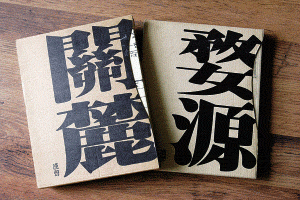 關麓
婺源